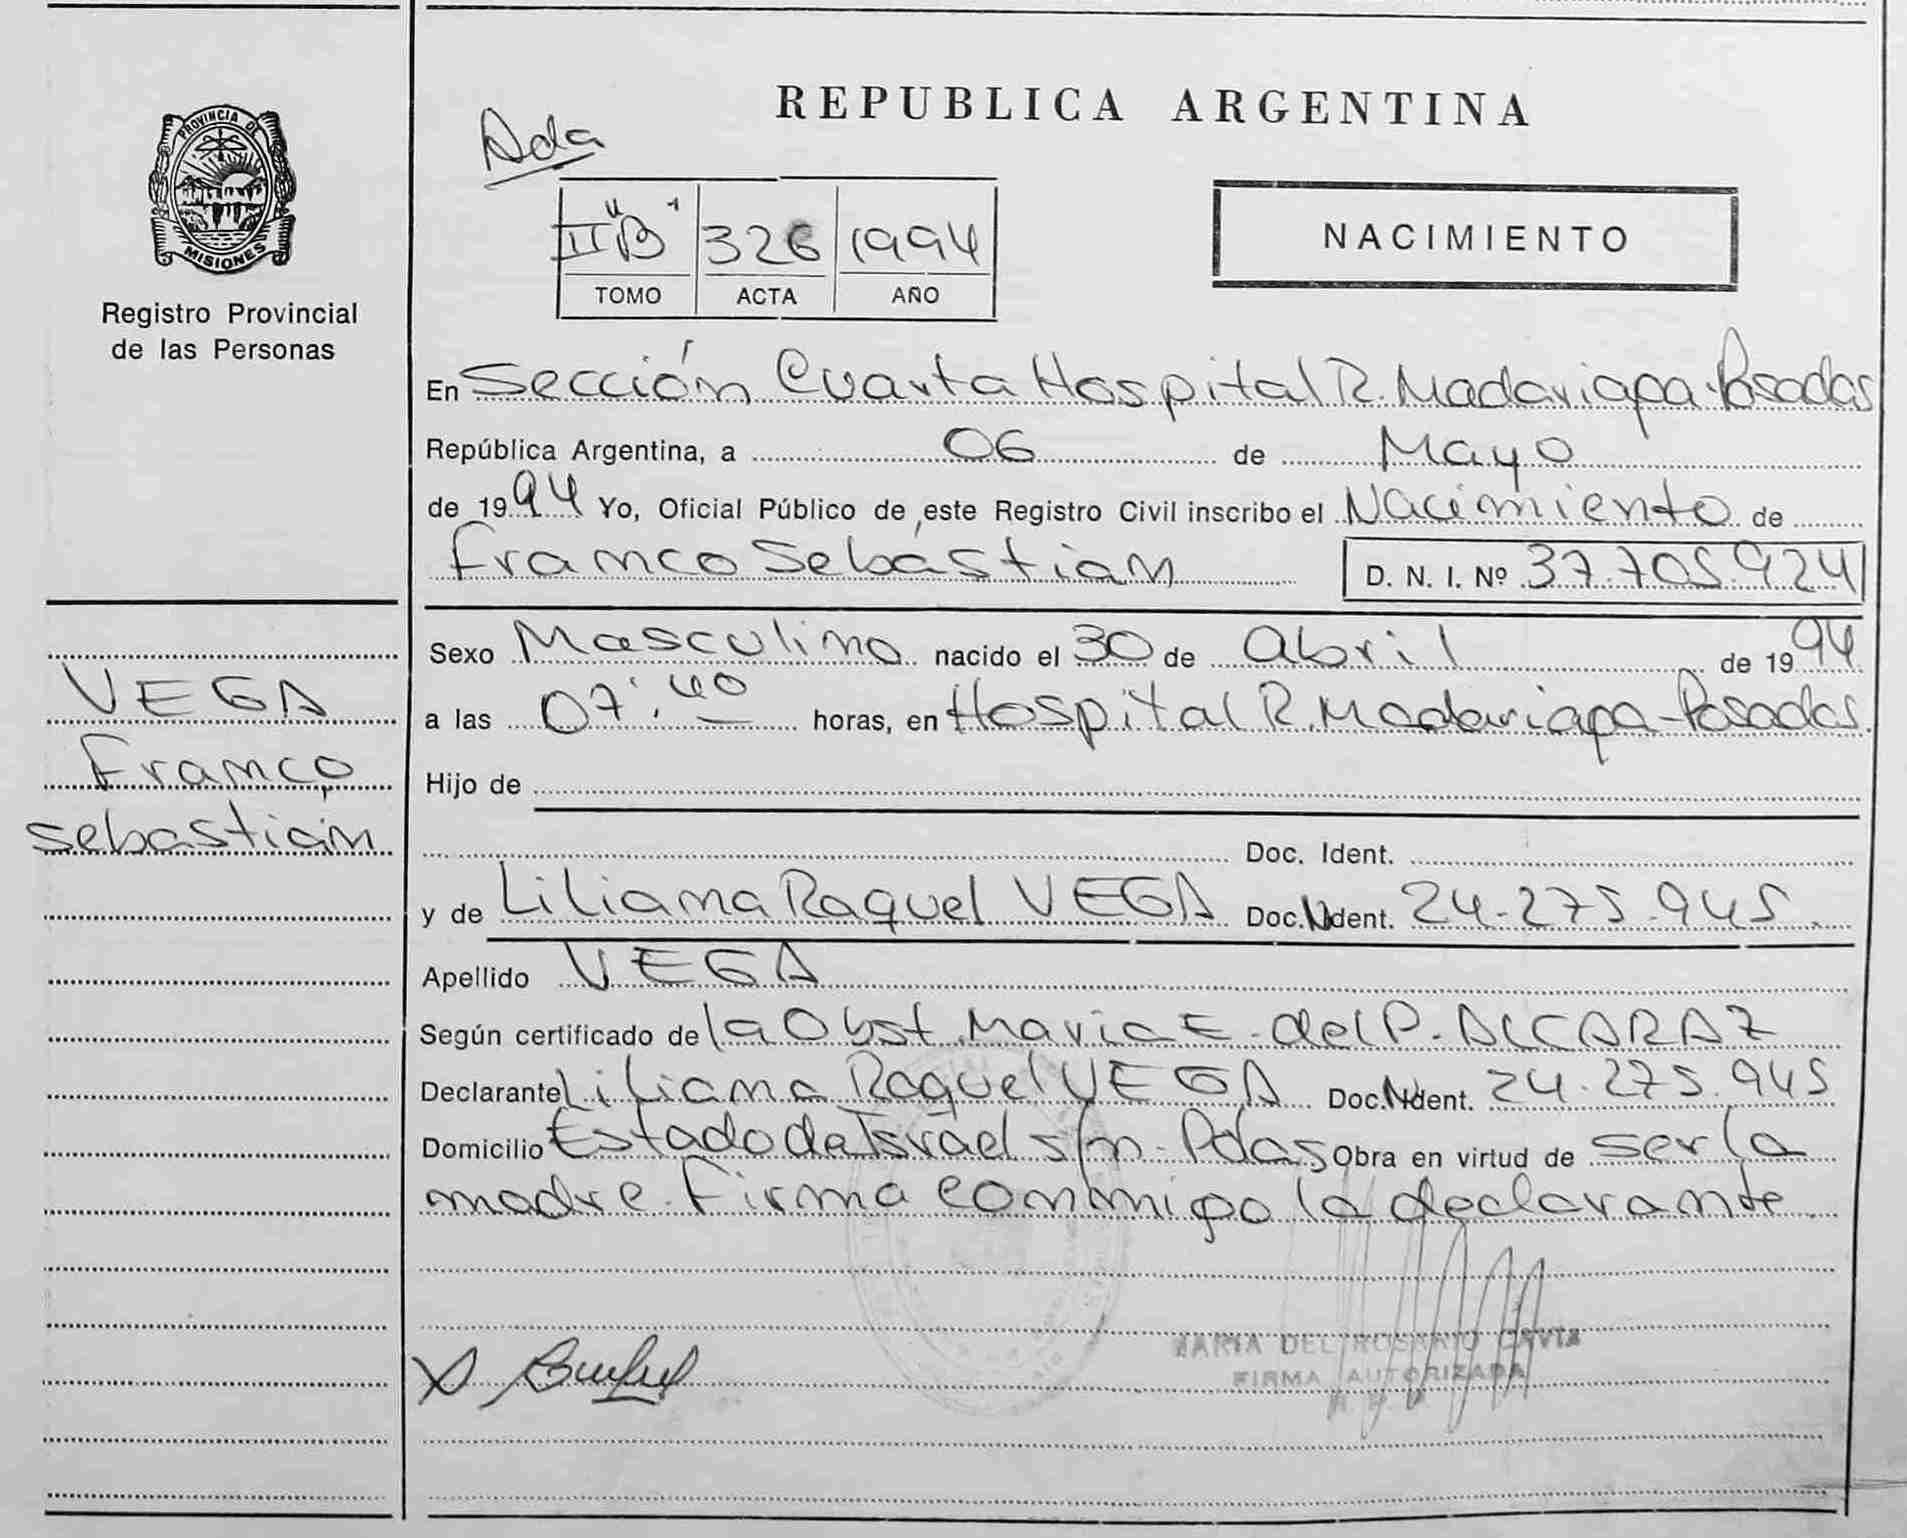 PROVINCIA DE
MISIONES
Registro Provincial
de las Personas
VEGA
Franco
Sebastián
REPUBLICA ARGENTINA
Ada
II "B" 326 1994
TOMO ACTA AÑO
NACIMIENTO
En Sección Cuarta Hospital R. Madariaga-Posadas
República Argentina, a 06 de Mayo
de 1994 Yo, Oficial Público de este Registro Civil inscribo el Nacimiento de
Franco Sebástian D. N. I. Nº 37.705.924
Sexo Masculino nacido el 30 de abril de 1994
a las 07:40 horas, en Hospital R. Madariaga-Posadas.
Hijo de
Doc. Ident.
y de Liliana Raquel VEGA Doc. Ident. 24.275.945.
Apellido VEGA
Según certificado de la Obst. Maria E. del P. ALCARAZ
Declarante Liliana Raquel VEGA Doc. Ident. 24.275.945
Domicilio Estado de Israel s/n - Pdas Obra en virtud de ser la
madre. Firma conmigo la declarante.
MARIA DEL ROSARIO
FIRMA AUTORIZADA